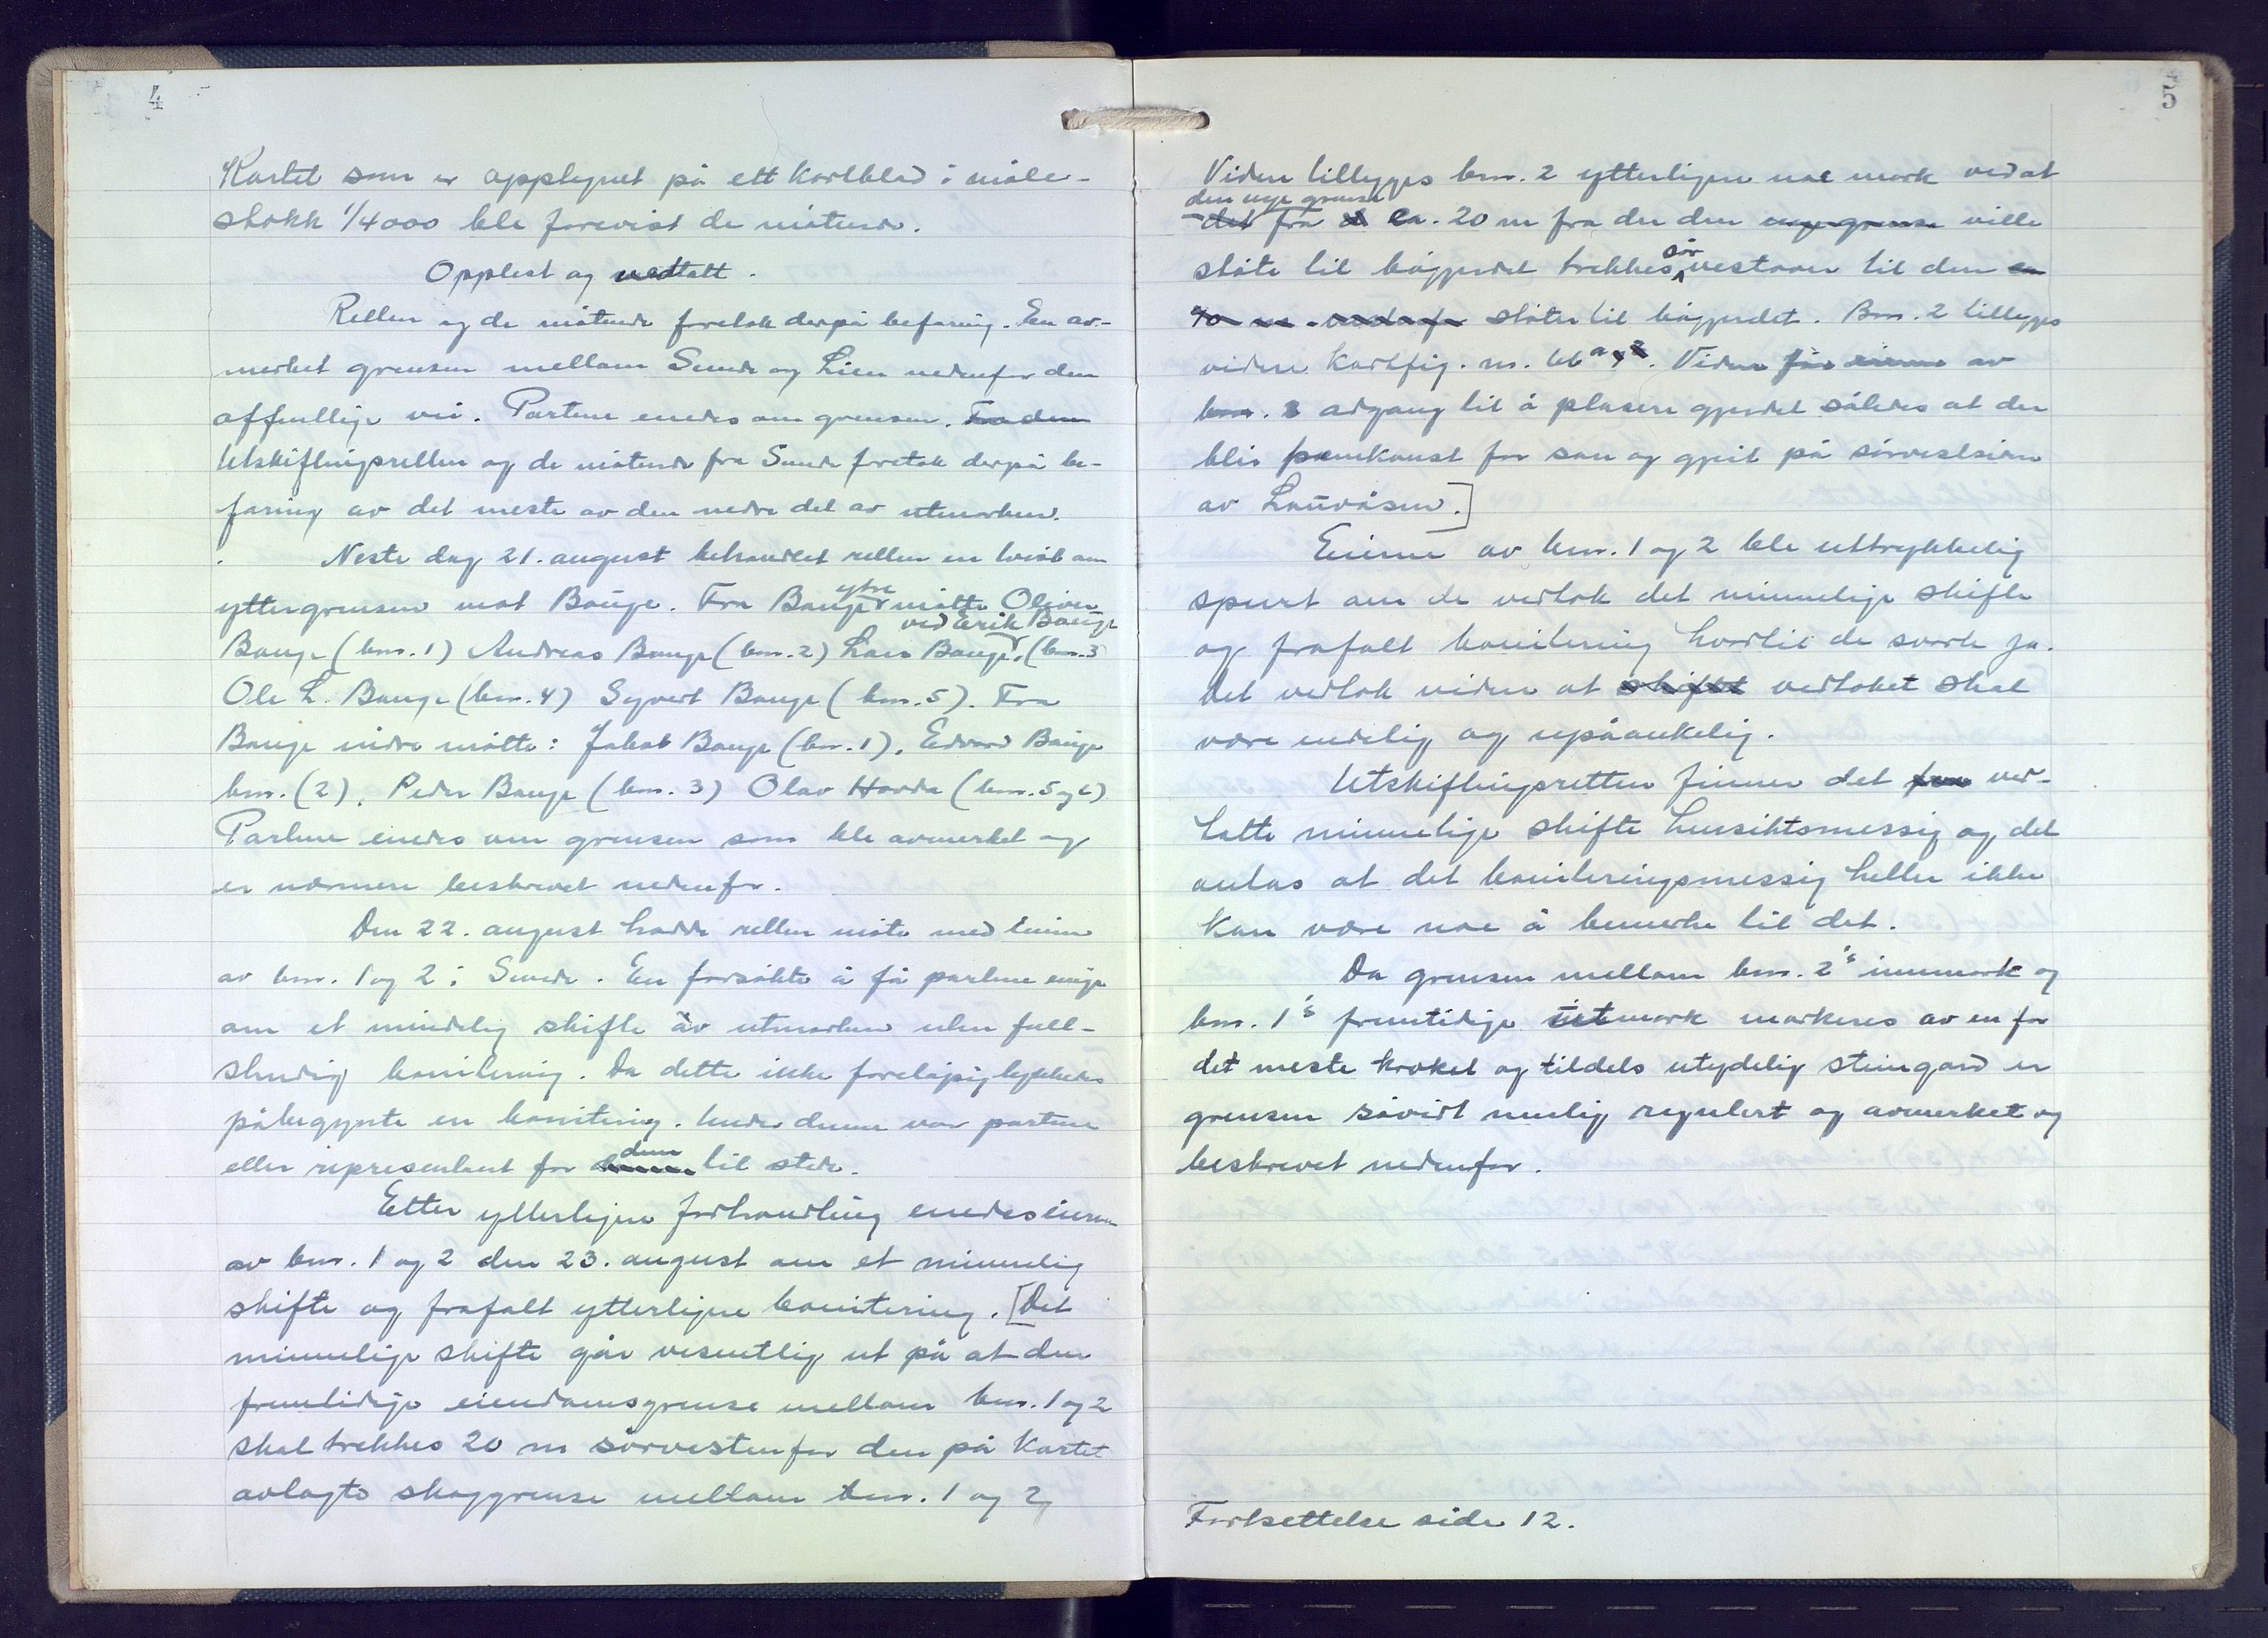 4
Kartet som er opptegnet på ett kartblad i måle-
stokk 1/4000 ble forevist de møtende.
Opplest og vedtatt.
Retten og de møtende foretok derpå befaring. En av-
merket grensen mellom Sunde og Lien nedenfor den
offentlige vei. Partene enedes om grensen. Fra den
Utskiftningsretten og de møtende fra Sunde foretok derpå be-
faring av det meste av den nedre del av utmarken.
Neste dag 21. august behandlet retten en tvist om
yttergrensen mot Bauge. Fra Bauge ytre møtte Oliver
Bauge (bnr. 1) Andreas Bauge (bnr. 2) Lars Bauge ved Erik Bauge, (bnr. 3
Ole L. Bauge (bnr. 4) Syvert Bauge (bnr. 5). Fra
Bauge indre møtte: Jakob Bauge (bnr. 1), Edvard Bauge
bnr. (2), Peder Bauge (bnr. 3) Olav Hovda (bnr. 5 og 6)
Partene enedes om grensen som ble avmerket og
er nærmere beskrevet nedenfor.
Den 22. august hadde retten møte med eierne
av bnr. 1 og 2 i Sunde. En forsøkte å få partene enige
om et mindelig skifte av utmarken uten full-
stendig bonitering. Da dette ikke foreløpig lykkedes
påbegynte en bonitering. Under denne var partene
eller representant for dem til stede.
Etter ytterligere forhandling enedes eierne
av bnr. 1 og 2 den 23. august om et minnelig
skifte og frafalt ytterligere bonitering. [Det
minnelige skifte går vesentlig ut på at den
fremtidige eiendomsgrense mellom bnr. 1 og 2
skal trekkes 20 m sørvestenfor den på kartet
avlagte skoggrense mellom bnr. 1 og 2,
5
Videre tillegges bnr. 2 ytterligere noe mark ved at
den nye grense
det fra ca. 20 m fra der den nye grense ville
støte til bøgjerdet trekkes sørvestover til den
40 m nedenfor støter til bøgjerdet. Bnr. 2 tillegges
videre kartfig. nr. 66 a. Videre får eierne av
bnr. adgang til å plasere gjerdet således at der
blir framkomst for sau og geit på sørvestsiden
av Lauvåsen.]
Eierne av bnr. 1 og 2 ble uttrykkelig
spurt om de vedtok det minnelige skifte
og frafalt bonitering hvortil de svarte ja.
Det vedtok videre at skiftet vedtaket skal
være endelig og upåankelig.
Utskiftningsretten finner det ved-
tatte minnelige skifte hensiktsmessig og det
antas at det boniteringsmessig heller ikke
kan være noe å bemerke til det.
Da grensen mellom bnr. 2's innmark og
bnr. 1's fremtidige utmark markeres av en for
det meste kroket og tildels utydelig steingard er
grensen såvidt mulig regulert og avmerket og
beskrevet nedenfor.
Fortsettelse side 12.